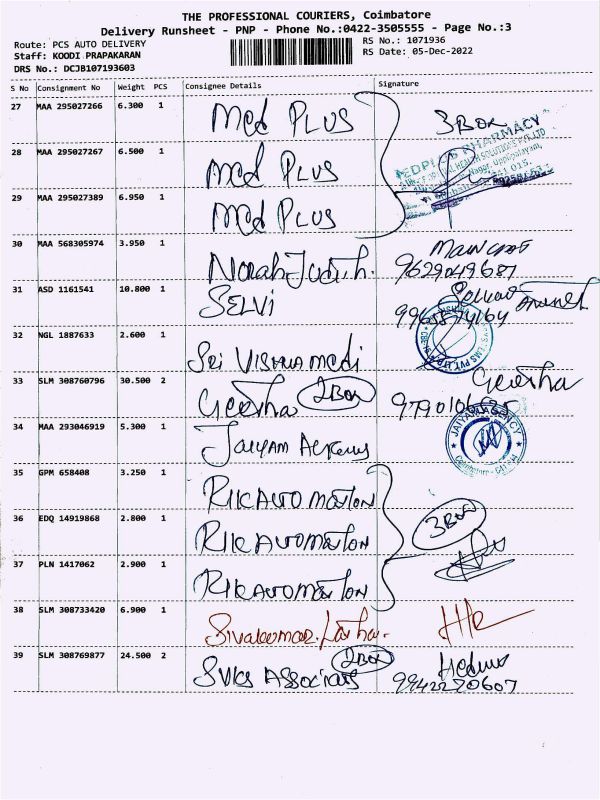 THE PROFESSIONAL COURIERS, Coimbatore
Delivery Runsheet - PNP - Phone No.:0422-3505555 - Page No.:3
Route: PCS AUTO DELIVERY RS No.: 1071936
Staff: KOODI PRAPAKARAN RS Date: 05-Dec-2022
DRS No.: DCJB107193603
S No Consignment No Weight PCS Consignee Details Signature
27 MAA 295027266 6.300 1 Med PLUS 3 Box
28 MAA 295027267 6.500 1 Med PLUS
29 MAA 295027389 6.950 1 Med PLUS
30 MAA 568305974 3.950 1 Norah Judith. 9629049687
31 ASD 1161541 10.800 1 SELVI
32 NGL 1887633 2.600 1 Sri VISHNU Medi
33 SLM 308760796 30.500 2 Geetha 2 Box Geetha
34 MAA 293046919 5.300 1 JAIYAM AGENCY
35 GPM 658408 3.250 1 RIK AUTOMATION
36 EDQ 14919868 2.800 1 RIK AUTOMATION 3 Box
37 PLN 1417062 2.900 1 RIK AUTOMATION
38 SLM 308733420 6.900 1 Sivakumar. Latha.
39 SLM 308769877 24.500 2 SVKS ASSOCIATES 2 Box 9942220607